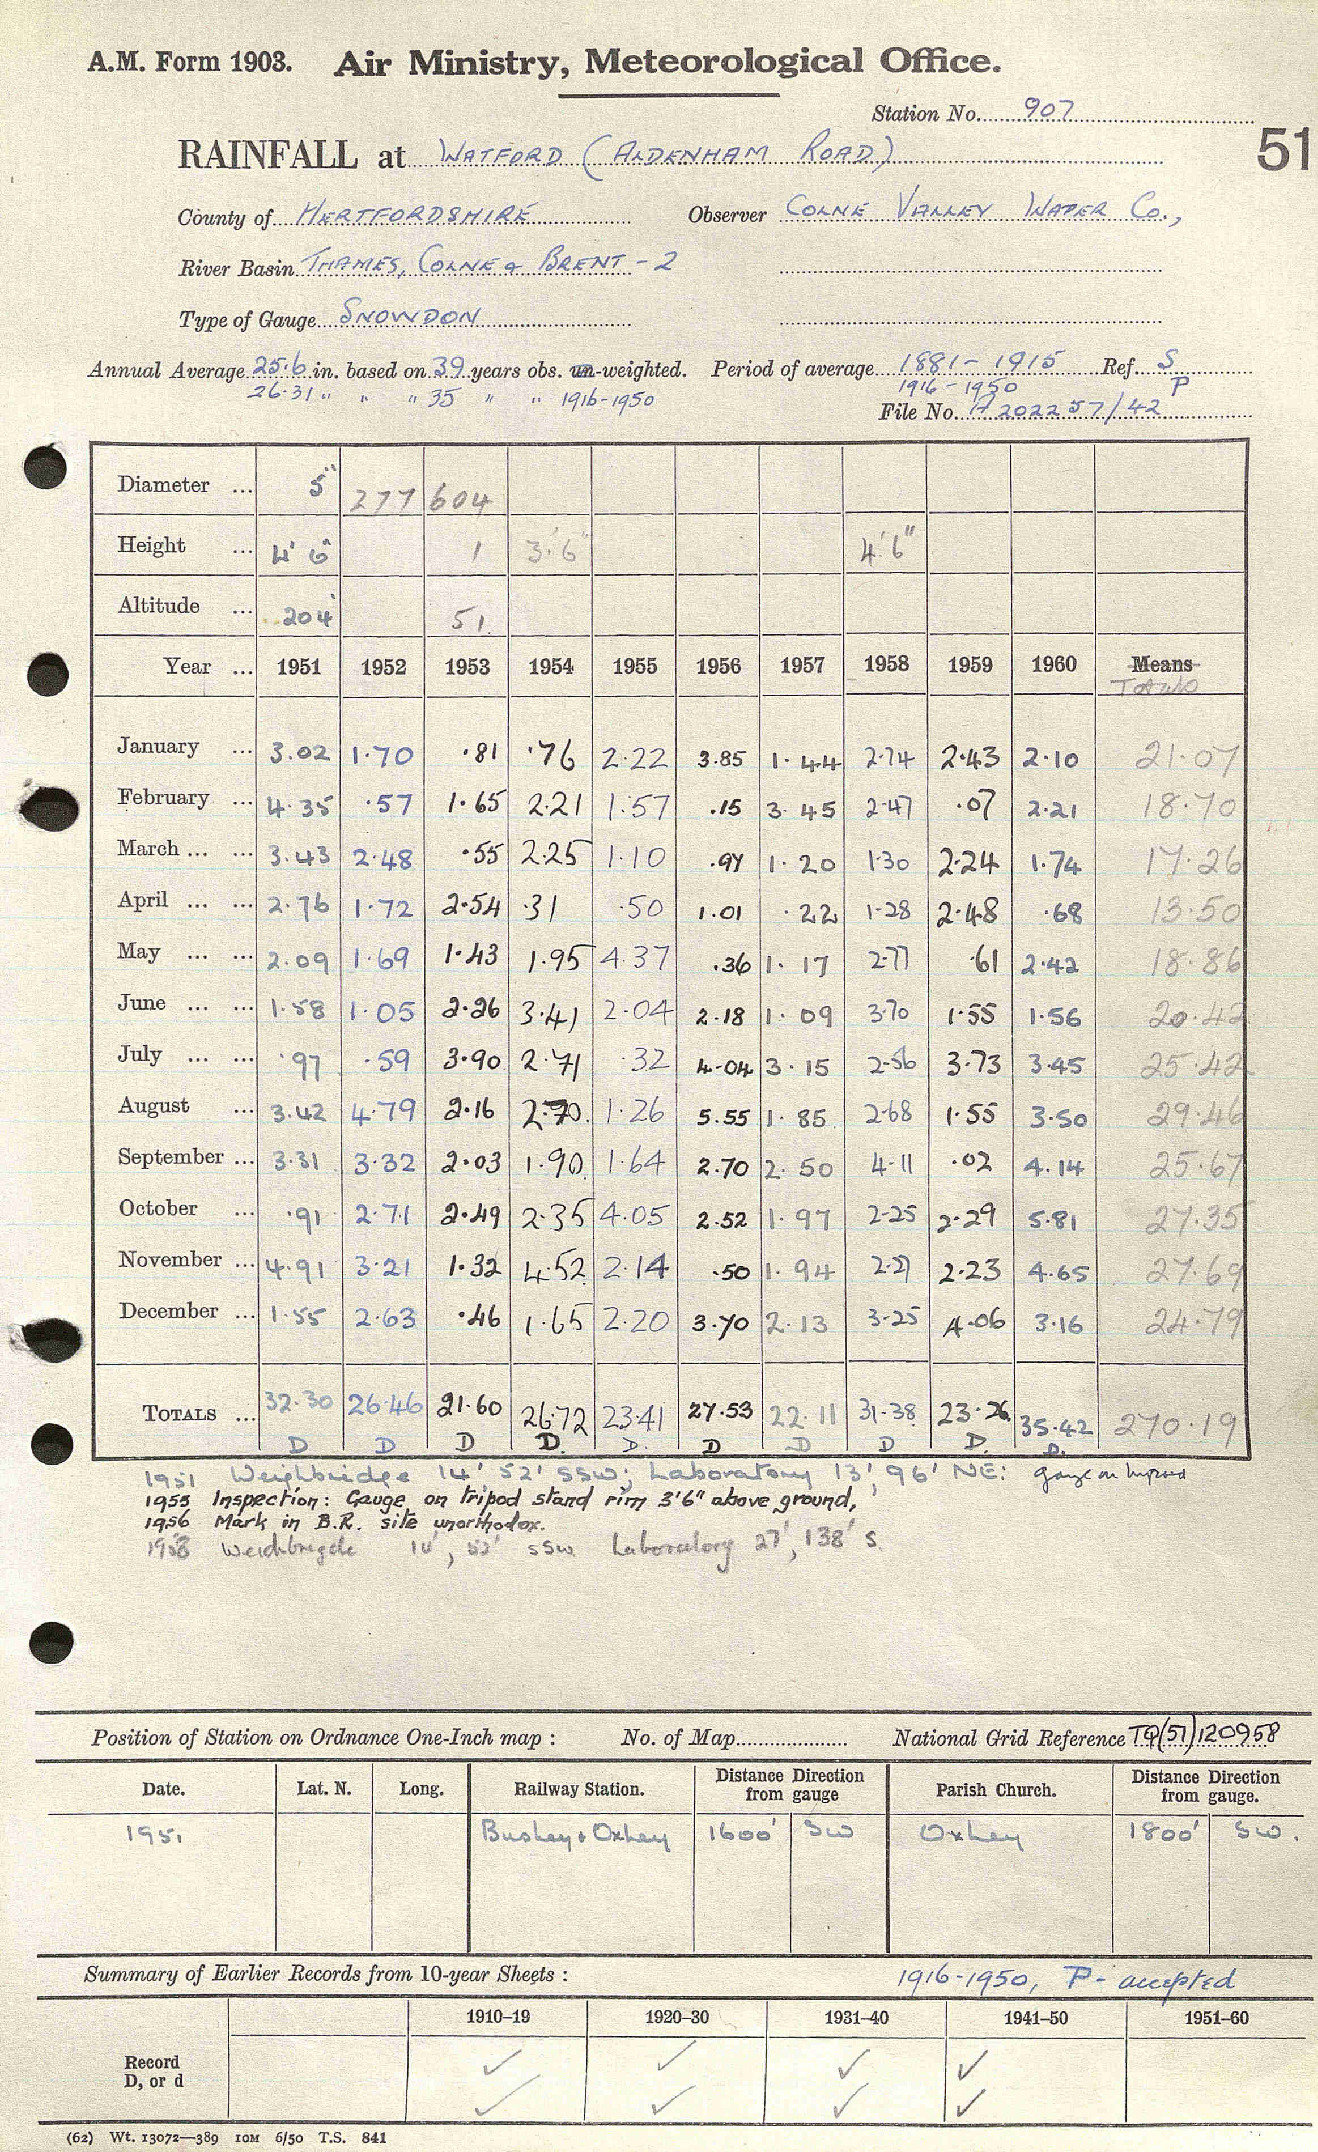 A.M. Form 1903. Air Ministry, Meteorological Office.
Station No. 907
51
RAINFALL at WATFORD (ALDENHAM ROAD)
County of HERTFORDSHIRE Observer COLNE VALLEY WATER Co.,
River Basin THAMES, COLNE & BRENT - 2
Type of Gauge SNOWDON
Annual Average 25.6 in. based on 39 years obs. un-weighted. Period of average 1881 - 1915 Ref. S
26.31 " " " 35 " " 1916-1950 1916 - 1950 P
File No. A 202257/42
Diameter ... 5" 277 604
Height ... 4' 6" 1 3'.6" 4'6"
Altitude ... 204' 51
Year ... 1951 1952 1953 1954 1955 1956 1957 1958 1959 1960 Means
January ... 3.02 1.70 .81 .76 2.22 3.85 1.44 2.74 2.43 2.10 21.07
February ... 4.35 .57 1.65 2.21 1.57 .15 3.45 2.47 .07 2.21 18.70
March ... ... 3.43 2.48 .55 2.25 1.10 .97 1.20 1.30 2.24 1.74 17.26
April ... ... 2.76 1.72 2.54 .31 .50 1.01 .22 1.28 2.48 .68 13.50
May ... ... 2.09 1.69 1.43 1.95 4.37 .36 1.17 2.77 .61 2.42 18.86
June ... ... 1.58 1.05 2.26 3.41 2.04 2.18 1.09 3.70 1.55 1.56 20.42
July ... ... .97 .59 3.90 2.71 .32 4.04 3.15 2.56 3.73 3.45 25.42
August ... 3.42 4.79 2.16 2.70 1.26 5.55 1.85 2.68 1.55 3.50 29.46
September ... 3.31 3.32 2.03 1.90 1.64 2.70 2.50 4.11 .02 4.14 25.67
October ... .91 2.71 2.49 2.35 4.05 2.52 1.97 2.25 2.29 5.81 27.35
November ... 4.91 3.21 1.32 4.52 2.14 .50 1.94 2.27 2.23 4.65 27.69
December ... 1.55 2.63 .46 1.65 2.20 3.70 2.13 3.25 4.06 3.16 24.79
TOTALS ... 32.30 26.46 21.60 26.72 23.41 27.53 22.11 31.38 23.26 35.42 270.19
D D D D. D. D D D D. D.
1951 Weighbridge 14', 52' SSW; Laboratory 13', 96' NE: gauge on
1955 Inspection: Gauge on tripod stand rim 3'6" above ground,
1956 Mark in B.R. site unorthodox.
1958 Weighbrigde 14', 52' SSW Laboratory 27', 138' S.
Position of Station on Ordnance One-Inch map : No. of Map National Grid Reference TQ(51)120958
Date. Lat. N. Long. Railway Station. Distance Direction from gauge Parish Church. Distance Direction from gauge.
1951 Bushey & Oxhey 1600' SW Oxhey 1800' SW.
Summary of Earlier Records from 10-year Sheets : 1916-1950, P - accepted
1910–19 1920–30 1931–40 1941–50 1951–60
Record ✓ ✓ ✓ ✓
D, or d ✓ ✓ ✓ ✓
(62) Wt. 13072—389 10M 6/50 T.S. 841